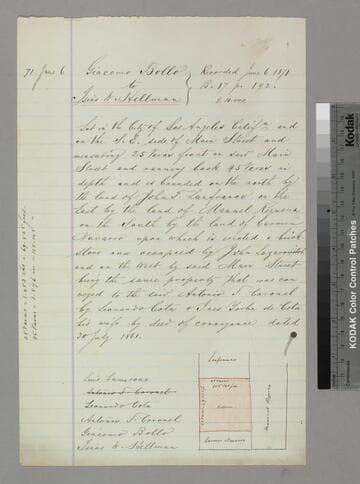 71 June 6
Giacomo Bollo
to
Isias W. Hellman
Recorded June 6 1871
B. 17 p. 192
Lot in the City of Los Angeles Califª and
on the S. E. side of Main Street and
measuring 25 varas front on said Main
Street and running back 45 varas in
depth and is bounded on the north by
the land of John T. Lanfranco on the
East by the land of Manuel Requena
on the South by the land of
Navarro upon which is erected a brick
store now occupied by John Lazarovich
and on the West by said Main Street
being the same property that was con
veyed to the said Antonio F. Coronel
by Leonardo Cota & Ines Cota
his wife by deed of conveyance dated
20 July 1861.
Luis Lamoreux
Antonio F. Coronel
Leonardo Cota
Antonio F. Coronel
Giacomo Bollo
Isias W. Hellman
Lanfranco
Navarro
Manuel Requena
KODAK Color Control Patches
Kodak